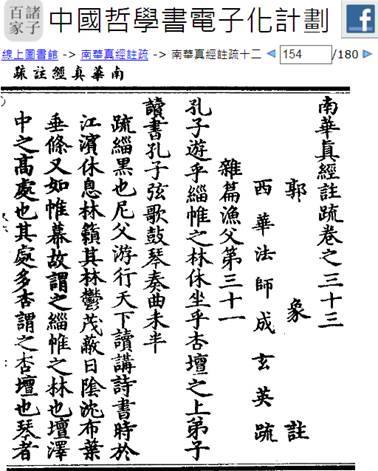 諸子百家
中國哲學書電子化計劃
線上圖書館 -> 南華真經註疏 -> 南華真經註疏十二
154
/180
南華真經註疏
南華真經註疏卷之三十三
郭象註
西華法師成玄英疏
雜篇漁父第三十一
孔子遊乎緇帷之林休坐乎杏壇之上弟子
讀書孔子弦歌鼓琴奏曲未半
疏緇黑也尼父游行天下讀講詩書時於
江濱休息林籟其林鬱茂蔽日陰沉布葉
垂條又如帷幕故謂之緇帷之林也壇澤
中之高處也其處多杏謂之杏壇也琴者